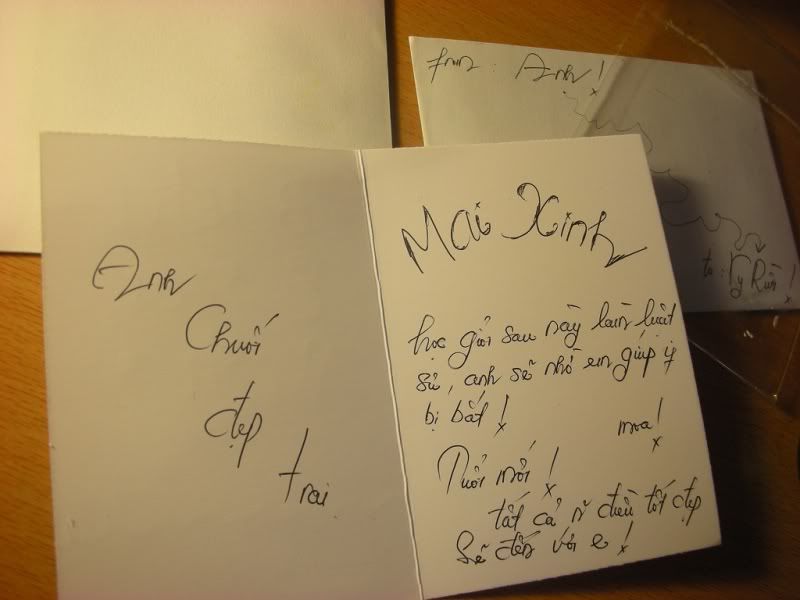 from : Anh !
to : Ty Rùi !
Anh
Chuối
đẹp
trai
Mai Xinh
học giỏi sau này làm luật
sư, anh sẽ nhờ em giúp
bị bắt !
moa !
Tuổi mới !
tất cả n~ điều tốt đẹp
Sẽ đến với e !